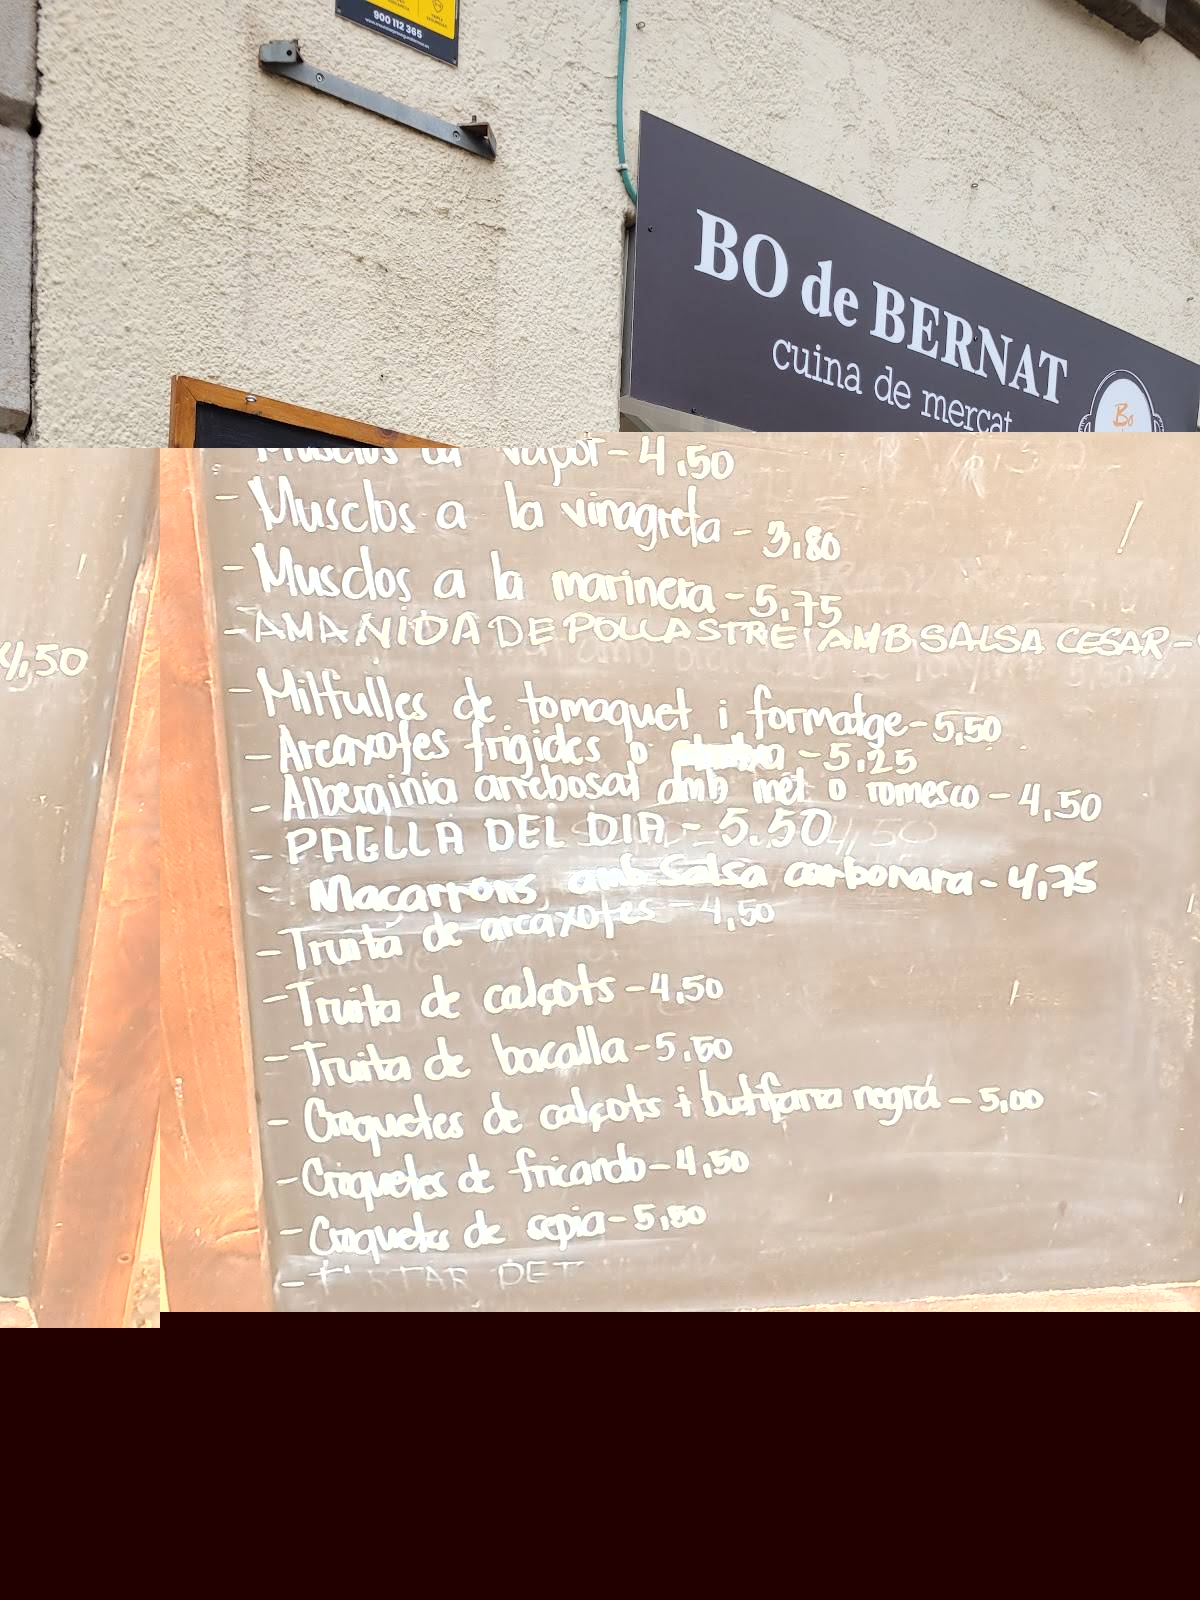 900 112 365
BO de BERNAT
cuina de mercat
Bo
4,50
Musclos al vapor - 4,50
- Musclos a la vinagreta - 3,80
- Musclos a la marinera - 5,75
- AMANIDA DE POLLASTRE AMB SALSA CESAR -
- Milfulles de tomaquet i formatge - 5,50
- Arcaxofes frigides o - 5,25
- Alberginia arrebosat amb mel o romesco - 4,50
- PAELLA DEL DIA - 5.50 4,50
- Macarrons amb Salsa carbonara - 4,75
- Truita de arcaxofes - 4,50
- Truita de calçots - 4,50
- Truita de bacalla - 5,50
- Croquetes de calçots i butifarra negrá - 5,00
- Croquetes de fricando - 4,50
- Croquetes de sepia - 5,50